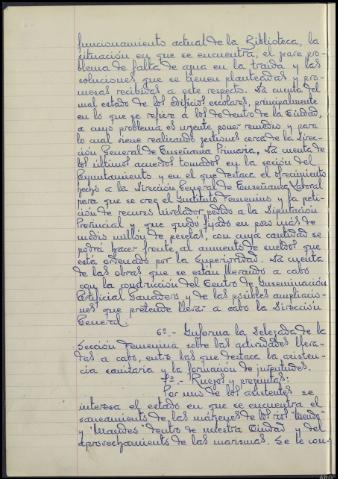 funcionamiento actual de la Biblioteca, la
situación en que se encuentra, el pro-
blema de falta de agua en la traida y las
soluciones que se tienen planteadas y pro-
mesas recibidas a este respecto. Da cuenta del
mal estado de los edificios escolares, principalmente
en lo que se refiere a los de dentro de la Ciudad,
a cuyo problema es urgente poner remedio y para
lo cual viene realizando gestiones cerca de la Direc-
ción General de Enseñanza Primaria. Da cuenta de
los últimos acuerdos tomados en la sesión del
Ayuntamiento y en el que destaca el ofrecimiento
hecho a la Dirección General de Enseñanza Laboral
para que se cree el Instituto Femenino y la peti-
ción de recurso nivelador pedido a la Diputación
Provincial y que quedó fijado en poco más de
medio millón de pesetas, con cuya cantidad se
podrá hacer frente al aumento de sueldos que
está ordenado por la Superioridad. Da cuenta
de las obras que se están llevando a cabo
con la construcción del Centro de Inseminación
Artificial Ganadera y de las posibles ampliacio-
nes que pretende llevar a cabo la Dirección
General.
6º.- Informa la Delegada de la
Sección Femenina sobre las actividades lleva-
das a cabo, entre las que destaca la asisten-
cia sanitaria y la formación de juventudes.
7º.- Ruegos y preguntas:
Por uno de los asistentes se
interesa el estado en que se encuentra el
saneamiento de las márgenes de los rios
y dentro de nuestra Ciudad y del
aprovechamiento de las marismas. Se le con-